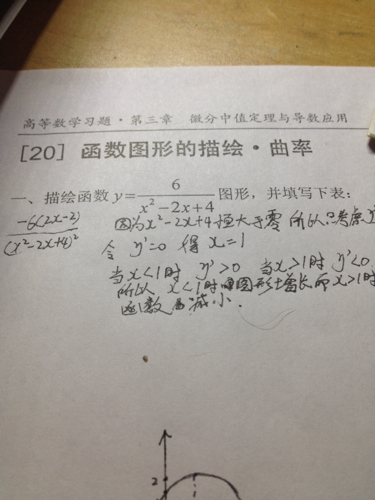 高等数学习题·第三章 微分中值定理与导数应用
[20] 函数图形的描绘·曲率
一、描绘函数 y = 6/(x²-2x+4) 图形，并填写下表：
-6(2x-2)/(x²-2x+4)²
因为x²-2x+4恒大于零 所以只考虑
令 y'=0 得 x=1
当x<1时 y'>0 当x>1时 y'<0
所以 x<1时 图形增长而x>1时
函数 减小.
2